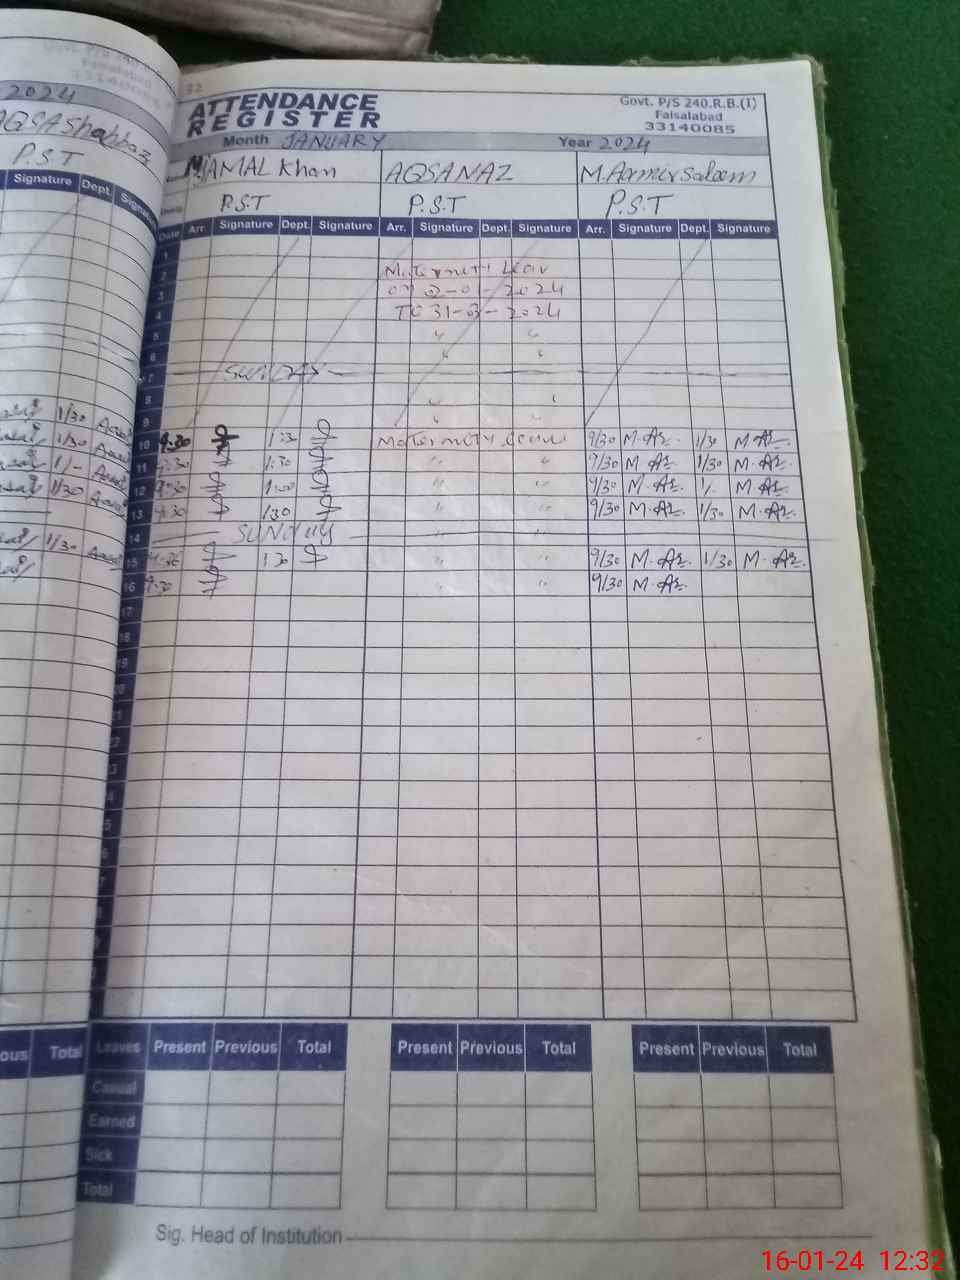 2024
AQSA Shahbaz
P.S.T
Signature Dept. Signature
1/30
1/30
1/-
1/30
1/30
ous Total
32
ATTENDANCE
REGISTER
Govt. P/S 240.R.B.(I)
Faisalabad
33140085
Month JANUARY Year 2024
M JAMAL Khan AQSA NAZ M. Aamir Saleem
P.S.T P.S.T P.S.T
Date Arr. Signature Dept. Signature Arr. Signature Dept. Signature Arr. Signature Dept. Signature
1
2 Materniti Leav
3 2-01-2024
4 TO 31-3-2024
5 " "
6 " "
7 SUNDAY
8 " "
9 " "
10 9:30 1:30 Maternity leave 9/30 M-Ar. 1/30 M-Ar.
11 9:30 1:30 " " 9/30 M-Ar. 1/30 M-Ar.
12 9:30 1:00 " " 9/30 M-Ar. 1/. M-Ar.
13 9:30 1:30 " " 9/30 M-Ar. 1/30 M-Ar.
14 SUNDAY " "
15 1:30 " " 9/30 M-Ar. 1/30 M-Ar.
16 9:30 " " 9/30 M-Ar.
17
18
19
20
21
Leaves Present Previous Total Present Previous Total Present Previous Total
Casual
Earned
Sick
Total
Sig. Head of Institution
16-01-24 12:32